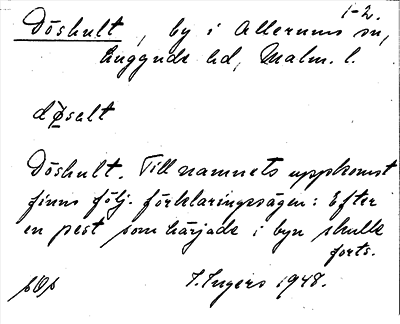 1-2.
Döshult, by i Allerums sn,
Luggude hd, Malm. l.
døsalt
Döshult. Till namnets uppkomst
finns följ. förklaringssägen: Efter
en pest som härjade i byn skulle
forts.
I. Ingers 1948.